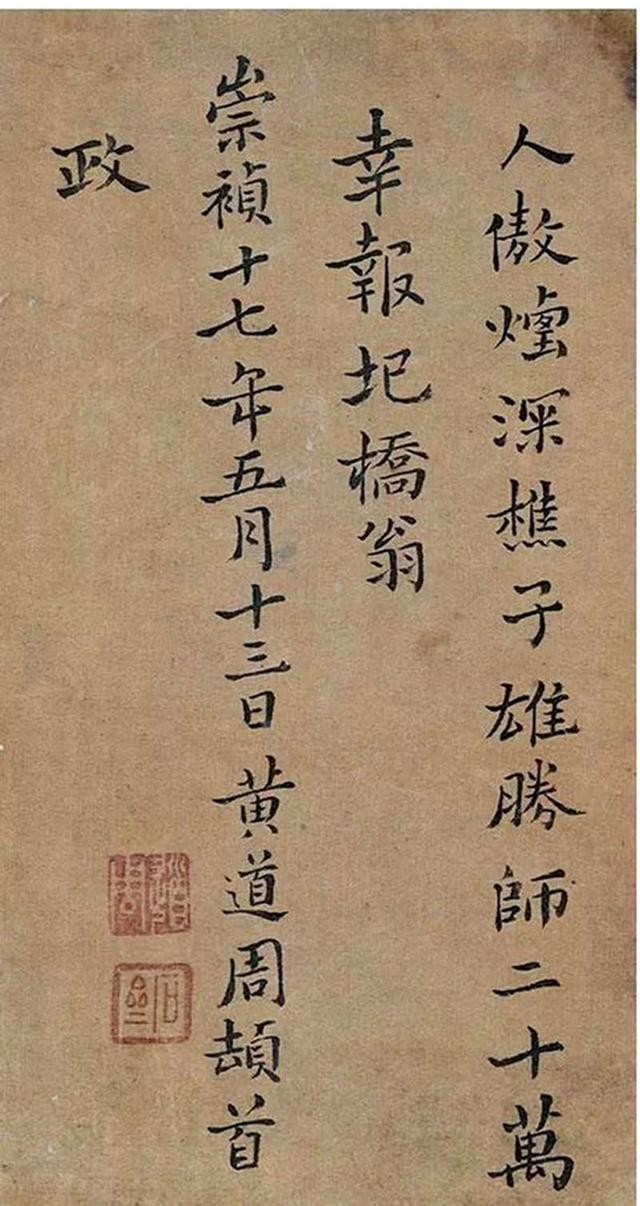 人傲㷛深樵子雄勝師二十萬
幸報圯橋翁
崇禎十七年五月十三日黃道周頓首
政